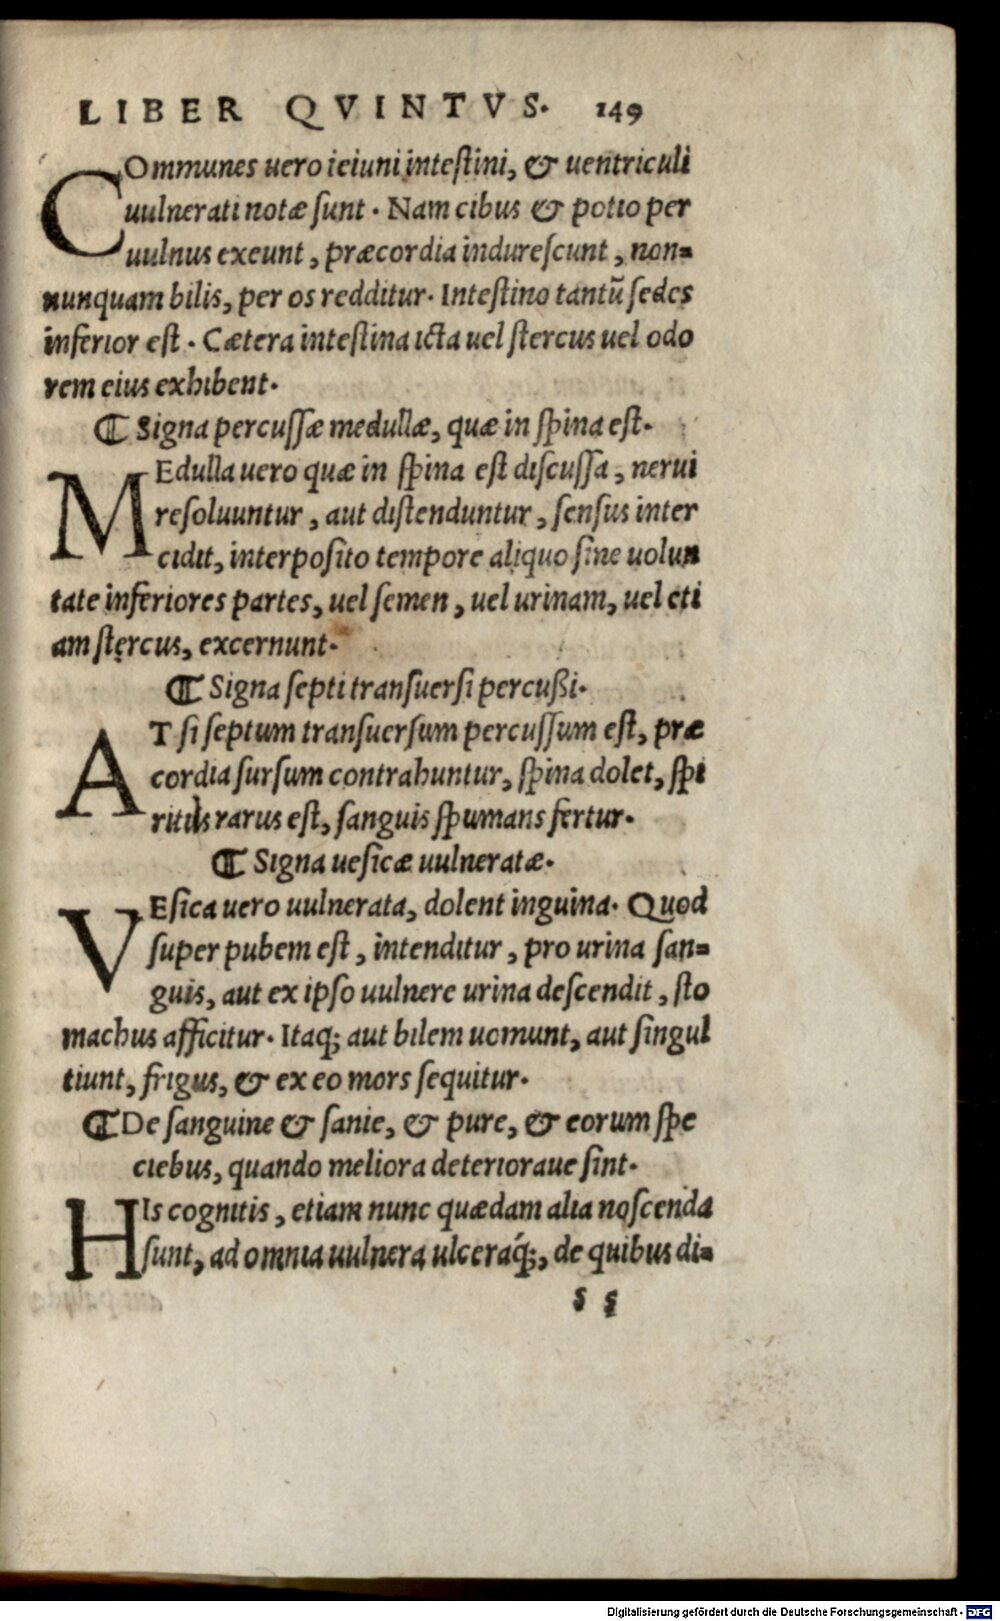 LIBER QVINTVS. 149
COmmunes uero ieiuni intestini, & uentriculi
uulnerati notæ sunt. Nam cibus & potio per
uulnus exeunt, præcordia indurescunt, non=
nunquam bilis, per os redditur. Intestino tantũ sedes
inferior est. Cætera intestina icta uel stercus uel odo
rem eius exhibent.
⸿ Signa percussæ medullæ, quæ in spina est.
MEdulla uero quæ in spina est discussa, nerui
resoluuntur, aut distenduntur, sensus inter
cidit, interposito tempore aliquo sine uolun
tate inferiores partes, uel semen, uel urinam, uel eti
am stercus, excernunt.
⸿ Signa septi transuersi percußi.
AT si septum transuersum percussum est, præ
cordia sursum contrahuntur, spina dolet, spi
ritus rarus est, sanguis spumans fertur.
⸿ Signa uesicæ uulneratæ.
VEsica uero uulnerata, dolent inguina. Quod
super pubem est, intenditur, pro urina san=
guis, aut ex ipso uulnere urina descendit, sto
machus afficitur. Itaq; aut bilem uomunt, aut singul
tiunt, frigus, & ex eo mors sequitur.
⸿ De sanguine & sanie, & pure, & eorum spe
ciebus, quando meliora deterioraue sint.
HIs cognitis, etiam nunc quædam alia noscenda
sunt, ad omnia uulnera ulceraq́;, de quibus di=
s s
Digitalisierung gefördert durch die Deutsche Forschungsgemeinschaft - DFG